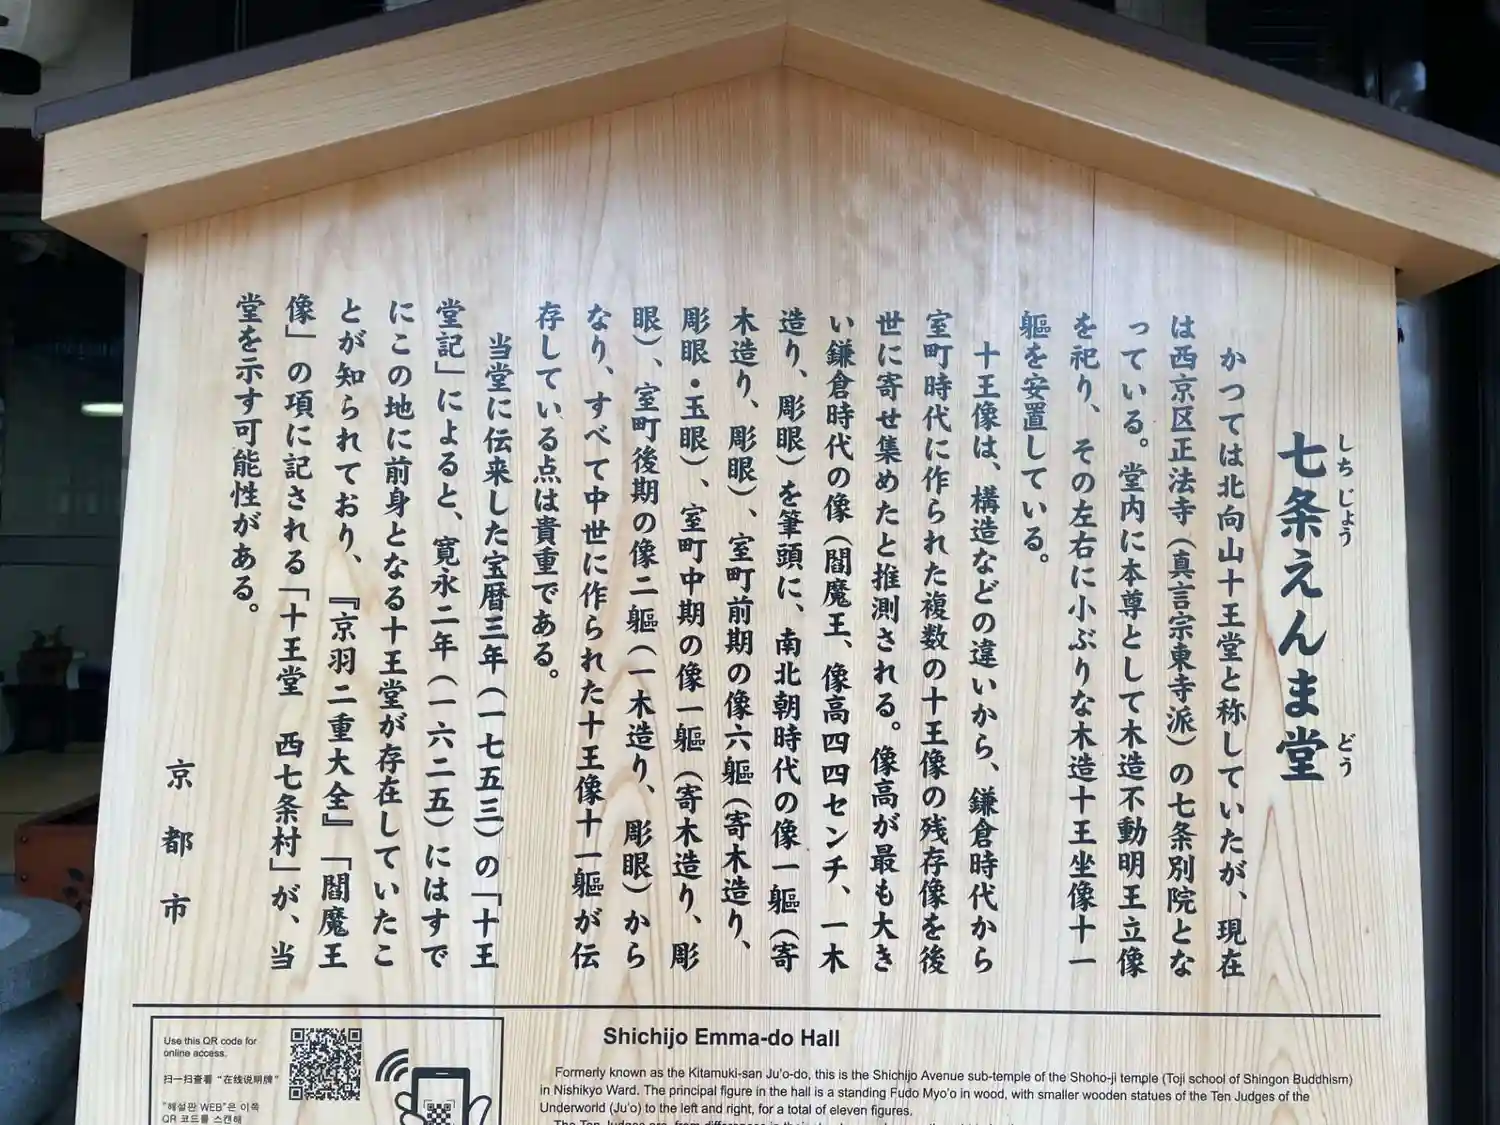 七条えんま堂
しちじょう
どう
かつては北向山十王堂と称していたが、現在
は西京区正法寺（真言宗東寺派）の七条別院とな
っている。堂内に本尊として木造不動明王立像
を祀り、その左右に小ぶりな木造十王坐像十一
軀を安置している。
十王像は、構造などの違いから、鎌倉時代から
室町時代に作られた複数の十王像の残存像を後
世に寄せ集めたと推測される。像高が最も大き
い鎌倉時代の像（閻魔王、像高四四センチ、一木
造り、彫眼）を筆頭に、南北朝時代の像一軀（寄
木造り、彫眼）、室町前期の像六軀（寄木造り、
彫眼・玉眼）、室町中期の像一軀（寄木造り、彫
眼）、室町後期の像二軀（一木造り、彫眼）から
なり、すべて中世に作られた十王像十一軀が伝
存している点は貴重である。
当堂に伝来した宝暦三年（一七五三）の「十王
堂記」によると、寛永二年（一六二五）にはすで
にこの地に前身となる十王堂が存在していたこ
とが知られており、『京羽二重大全』「閻魔王
像」の項に記される「十王堂　西七条村」が、当
堂を示す可能性がある。
京都市
Use this QR code for
online access.
扫一扫查看“在线说明牌”
"해설판 WEB"은 이쪽
QR 코드를 스캔해
Shichijo Emma-do Hall
Formerly known as the Kitamuki-san Ju'o-do, this is the Shichijo Avenue sub-temple of the Shoho-ji temple (Toji school of Shingon Buddhism)
in Nishikyo Ward. The principal figure in the hall is a standing Fudo Myo'o in wood, with smaller wooden statues of the Ten Judges of the
Underworld (Ju'o) to the left and right, for a total of eleven figures.